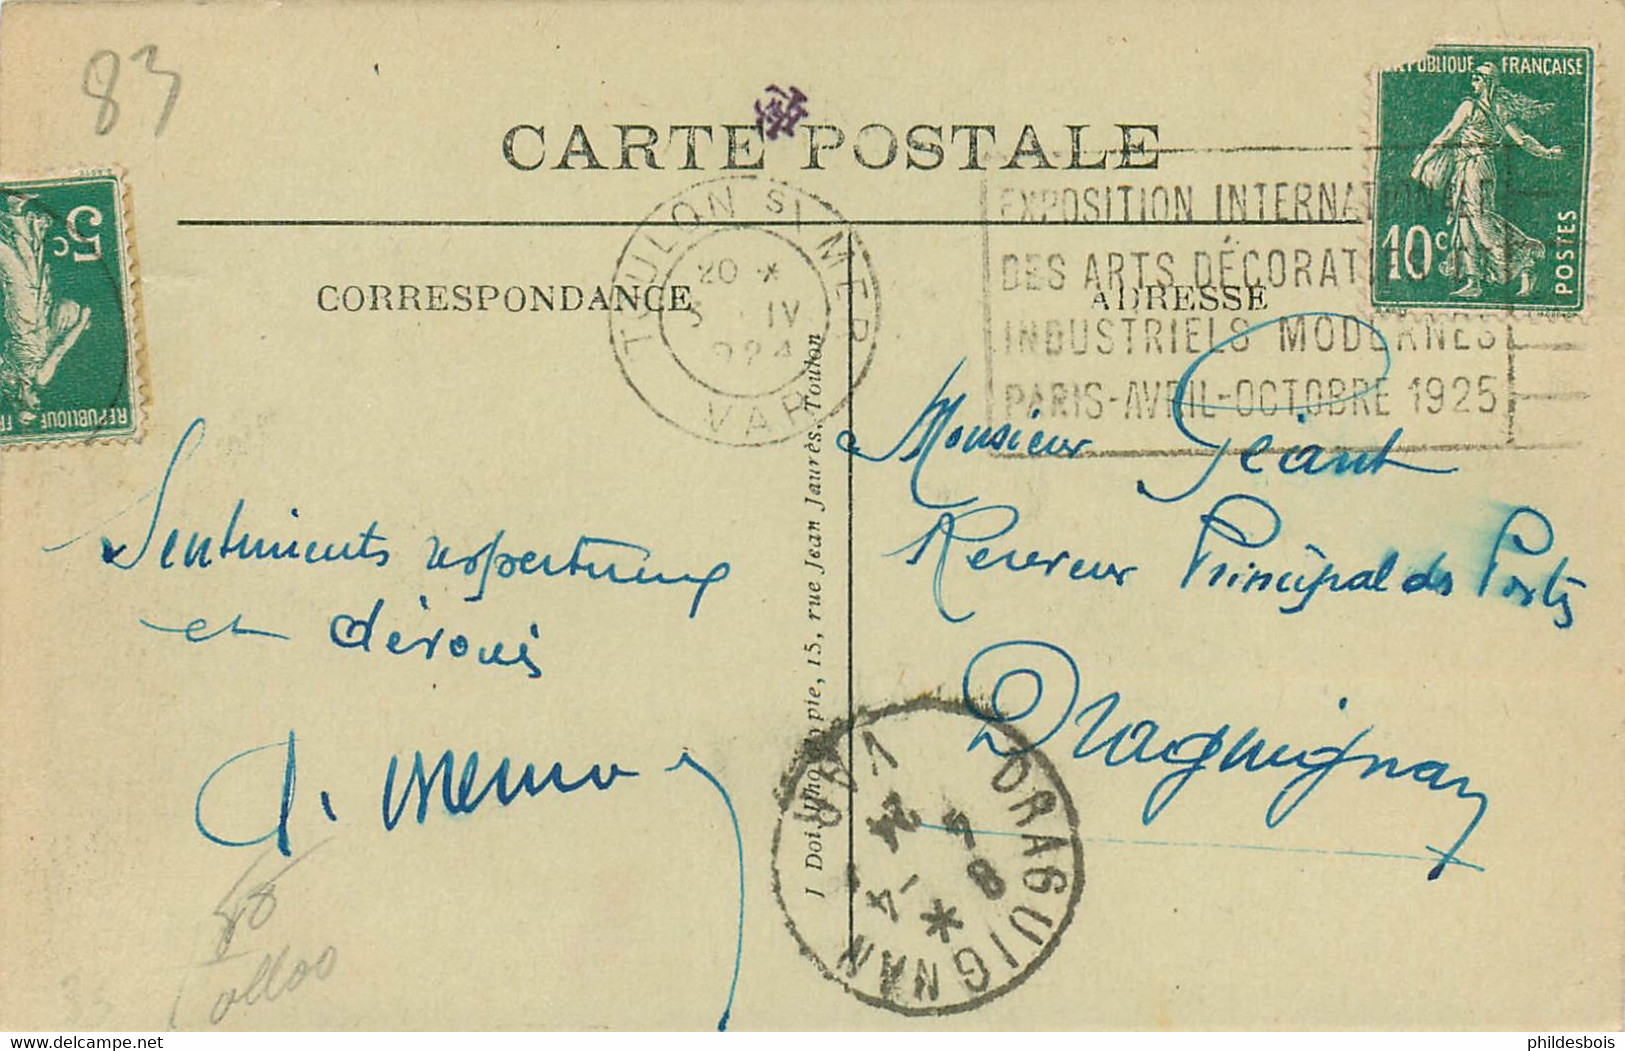 83
CARTE POSTALE
RÉPUBLIQUE FRANÇAISE
10c
POSTES
5c
RÉPUBLIQUE
TOULON S/ MER
20 *
IV
VAR
EXPOSITION INTERNATIONALE
DES ARTS DÉCORATIFS
INDUSTRIELS MODERNES
PARIS-AVRIL-OCTOBRE 1925
CORRESPONDANCE
ADRESSE
Sentiments respectueux
et dévoués
à Monsieur Géant
Receveur Principal des Postes
Draguignan
15, rue Jean Jaurès, Toulon
DRAGUIGNAN
VAR
8-5
*
4-
24
phildesbois